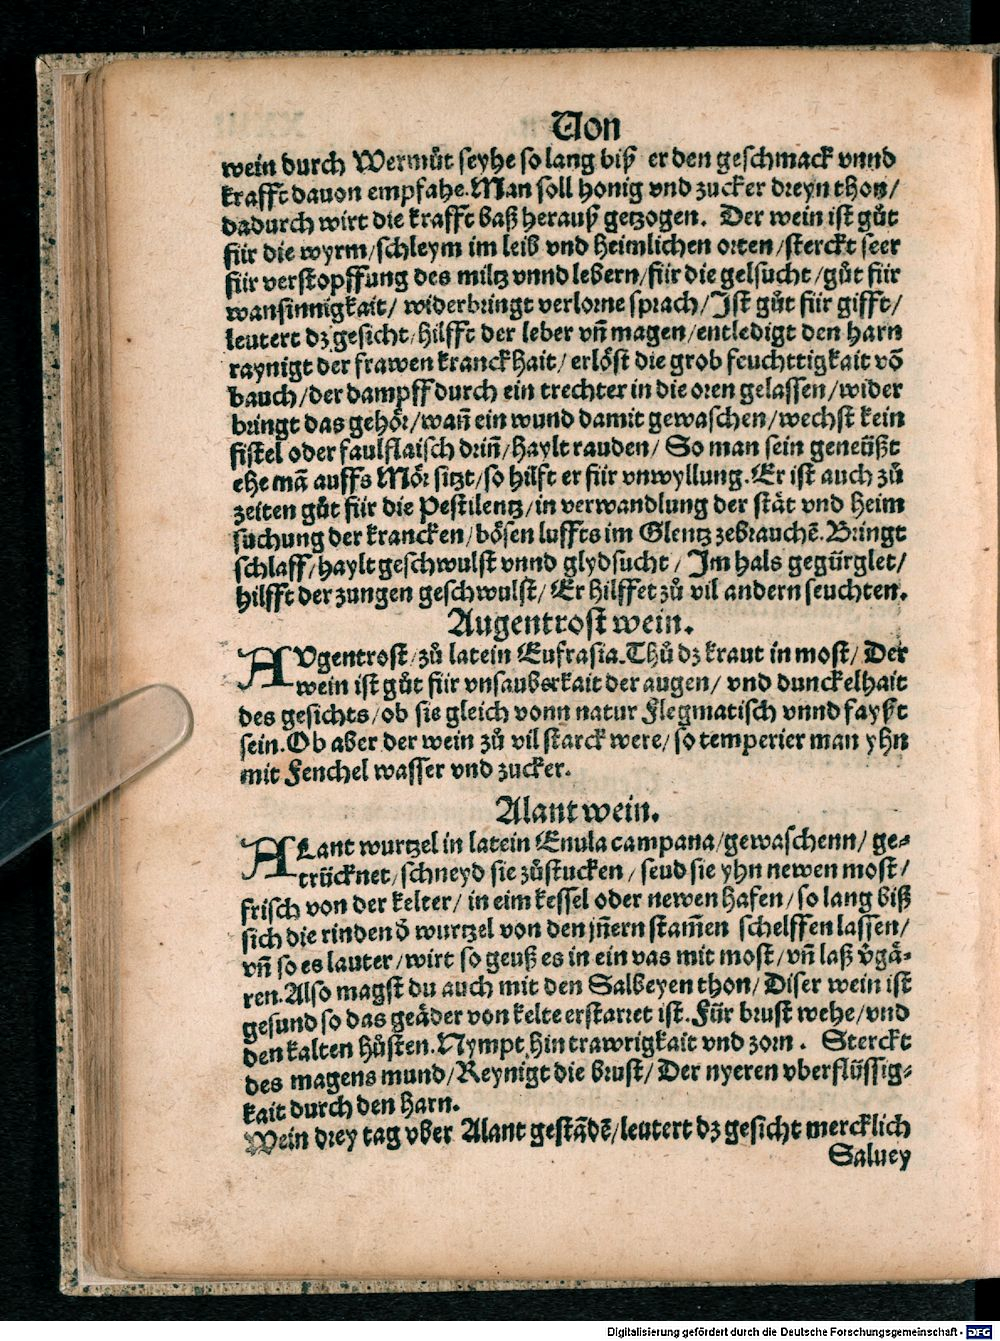 Von
wein durch Wermůt seyhe so lang biß er den geschmack vnnd
krafft dauon empfahe. Man soll honig vnd zucker dreyn thon/
dadurch wirt die krafft baß herauß getzogen. Der wein ist gůt
für die wyrm/schleym im leib vnd heimlichen orten/sterckt seer
für verstopffung des miltz vnnd lebern/für die gelsucht/gůt für
wansinnigkait/ widerbringt verlorne sprach/Jst gůt für gifft/
leutert dz gesicht/hilfft der leber vñ magen/entledigt den harn
raynigt der frawen kranckhait/ erlöst die grob feuchttigkait võ
bauch/der dampff durch ein trechter in die oren gelassen/wider
bringt das gehör/wañ ein wund damit gewaschen/wechst kein
fistel oder faulflaisch driñ/haylt rauden/ So man sein geneüßt
ehe mã auffs Mör sitzt/so hilft er für vnwyllung. Er ist auch zů
zeiten gůt für die Pestilentz/in verwandlung der stät vnd heim
suchung der krancken/bösen luffts im Glentz zebrauchẽ. Bringt
schlaff/haylt geschwulst vnnd glydsucht/ Jm hals gegürglet/
hilfft der zungen geschwulst/ Er hilffet zů vil andern seuchten.
Augentrost wein.
AVgentrost/zů latein Eufrasia. Thů dz kraut in most/ Der
wein ist gůt für vnsauberkait der augen/ vnd dunckelhait
des gesichts/ob sie gleich vonn natur flegmatisch vnnd faysst
sein. Ob aber der wein zů vil starck were/so temperier man yhn
mit Fenchel wasser vnd zucker.
Alant wein.
ALant wurtzel in latein Enula campana/gewaschenn/ ge-
trücknet/schneyd sie zůstucken/ seud sie yhn newen most/
frisch von der kelter/ in eim kessel oder newen hafen/so lang biß
sich die rinden ð wurtzel von den jñern stam̃en schelffen lassen/
vñ so es lauter/wirt so geuß es in ein vas mit most/vñ laß v̊gä-
ren. Also magst du auch mit den Salbeyen thon/Diser wein ist
gesund so das geäder von kelte erstarret ist. Für brust wehe/vnd
den kalten hůsten. Nympt hin trawrigkait vnd zorn. Sterckt
des magens mund/Reynigt die brust/ Der nyeren vberflüssig-
kait durch den harn.
Wein drey tag vber Alant gestãdẽ/leutert dz gesicht mercklich
Saluey
Digitalisierung gefördert durch die Deutsche Forschungsgemeinschaft - DFG